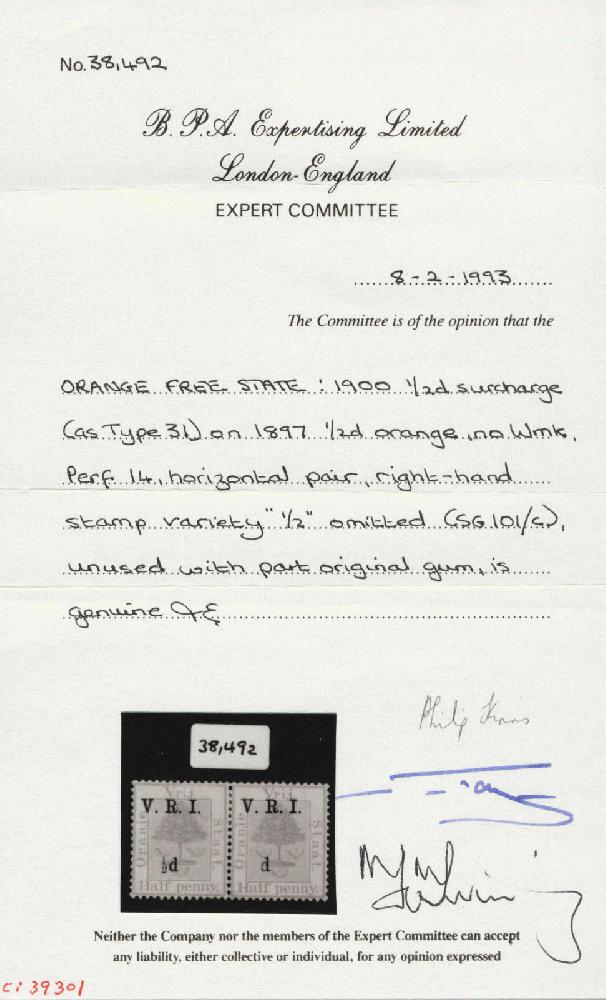 No. 38,492
B. P.A. Expertising Limited
London-England
EXPERT COMMITTEE
8-2-1993
The Committee is of the opinion that the
ORANGE FREE STATE : 1900 ½d surcharge
(as Type 31) on 1897 ½d orange, no Wmk,
Perf. 14, horizontal pair, right-hand
stamp variety "½" omitted (SG 101/c),
unused with part original gum, is
genuine
38,492
Vrij
V. R. I.
Oranje
Staat
½d
Half penny
Vrij
V. R. I.
Oranje
Staat
d
Half penny
Neither the Company nor the members of the Expert Committee can accept
any liability, either collective or individual, for any opinion expressed